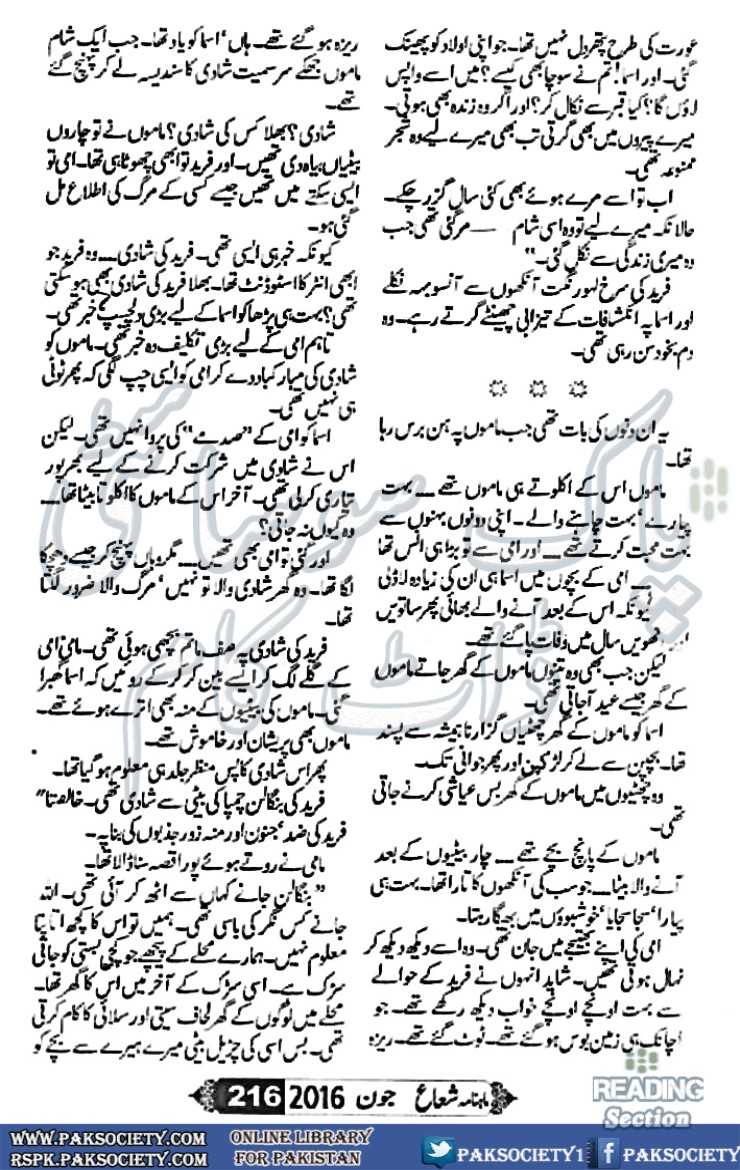 عورت کی طرح پتھر دل نہیں تھا۔ جو اپنی اولاد کو پھینک
گئی۔ اور اسما! تم نے سوچا بھی کیسے؟ میں اسے واپس
لاؤں گا؟ کیا قبر سے نکال کر؟ اور اگر وہ زندہ بھی ہوتی۔
میرے پیروں میں بھی گرتی تب بھی میرے لیے وہ شجر
ممنوعہ تھی۔
اب تو اسے مرے ہوئے بھی کئی سال گزر چکے۔
حالانکہ میرے لیے تو وہ اسی شام — مر گئی تھی جب
وہ میری زندگی سے نکل گئی۔"
فرید کی سرخ لہو رنگ آنکھوں سے آنسو بہہ نکلے
اور اسما پہ انکشافات کے تیزابی چھینٹے گرتے رہے۔ وہ
دم بخود سن رہی تھی۔
یہ ان دنوں کی بات تھی جب ماموں پہ ہن برس رہا
تھا۔
ماموں اس کے اکلوتے ہی ماموں تھے — بہت
پیارے' بہت چاہنے والے۔ اپنی دونوں بہنوں سے
بہت محبت کرتے تھے — اور امی سے تو بڑا ہی انس تھا
— امی کے بچوں میں اسما ہی ان کی زیادہ لاڈلی
کیونکہ اس کے بعد آنے والے بھائی پھر ساتویں
آٹھویں سال میں وفات پا گئے تھے۔
لیکن جب بھی وہ تینوں ماموں کے گھر جاتے ماموں
کے گھر جیسے عید آ جاتی تھی۔
اسما کو ماموں کے گھر چھٹیاں گزارنا ہمیشہ سے پسند
تھا۔ بچپن سے لے کر لڑکپن اور پھر جوانی تک۔
وہ چھٹیوں میں ماموں کے گھر بس عیاشی کرنے جاتی
تھی۔
ماموں کے پانچ بچے تھے — چار بیٹیوں کے بعد
آنے والا بیٹا — جو سب کی آنکھوں کا تارا تھا۔ بہت ہی
پیارا' سجا سجایا' خوشبوؤں میں بھیگا رہتا۔
امی کی اپنے بھتیجے میں جان تھی۔ وہ اسے دیکھ دیکھ کر
نہال ہوتی تھیں۔ شاید انہوں نے فرید کے حوالے
سے بہت اونچے اونچے خواب دیکھ رکھے تھے۔ جو
اچانک ہی زمین بوس ہو گئے تھے۔ ٹوٹ گئے تھے۔ ریزہ
ریزہ ہو گئے تھے۔ ہاں' اسما کو یاد تھا۔ جب ایک شام
ماموں جھکے سر سمیت شادی کا سندیسہ لے کر پہنچ گئے
تھے۔
شادی؟ بھلا کس کی شادی؟ ماموں نے تو چاروں
بیٹیاں بیاہ دی تھیں۔ اور فرید تو ابھی چھوٹا ہی تھا۔ امی تو
ایسی سکتے میں تھیں جیسے کسی کے مرگ کی اطلاع مل
گئی ہو۔
کیونکہ خبر ہی ایسی تھی۔ فرید کی شادی — وہ فرید جو
ابھی انٹر کا اسٹوڈنٹ تھا۔ بھلا فرید کی شادی بھی ہو سکتی
تھی؟ بہت ہی پڑھاکو اسما کے لیے بڑی دلچسپ خبر تھی۔
تاہم امی کے لیے بڑی تکلیف دہ خبر تھی۔ ماموں کو
شادی کی مبارکباد دے کر امی کو ایسی چپ لگی کہ پھر ٹوٹی
ہی نہیں تھی۔
اسما کو امی کے "صدمے" کی پروا نہیں تھی۔ لیکن
اس نے شادی میں شرکت کرنے کے لیے بھرپور
تیاری کر لی تھی۔ آخر اس کے ماموں کا اکلوتا بیٹا تھا —
وہ کیوں نہ جاتی؟
اور گئی تو امی بھی تھیں — مگر وہاں پہنچ کر جیسے دھچکا
لگا تھا۔ وہ گھر شادی والا تو نہیں' مرگ والا ضرور لگتا
تھا۔
فرید کی شادی پہ صف ماتم بچھی ہوئی تھی۔ مامی امی
کے گلے لگ کر ایسے بین کر کر کے روئیں کہ اسما گھبرا
گئی۔ ماموں کی بیٹیوں کے منہ بھی اترے ہوئے تھے۔
ماموں بھی پریشان اور خاموش تھے۔
پھر اس شادی کا پس منظر جلد ہی معلوم ہو گیا تھا۔
فرید کی بنگالن چمپا کی بیٹی سے شادی تھی۔ خالصتا"
فرید کی ضد' جنون اور منہ زور جذبوں کی بنا پہ۔
مامی نے روتے ہوئے پورا قصہ سنا ڈالا تھا۔
"بنگالن جانے کہاں سے اٹھ کر آئی تھی۔ اللہ
جانے کس نگر کی باسی تھی۔ ہمیں تو اس کا کچھ اتا پتا
معلوم نہیں۔ ہمارے محلے کے پیچھے جو کچی بستی کو جاتی
سڑک ہے۔ اسی سڑک کے آخر میں اس کا گھر تھا۔
محلے میں لوگوں کے گھر لحاف سیتی اور سلائی کا کام کرتی
تھی۔ بس اسی کی چڑیل بیٹی میرے ہیرے سے بچے کو
ماہنامہ شعاع جون 2016 216
READING
Section
پاک سوسائٹی
ڈاٹ کام
WWW.PAKSOCIETY.COM
RSPK.PAKSOCIETY.COM
ONLINE LIBRARY
FOR PAKISTAN
PAKSOCIETY1
PAKSOCIETY